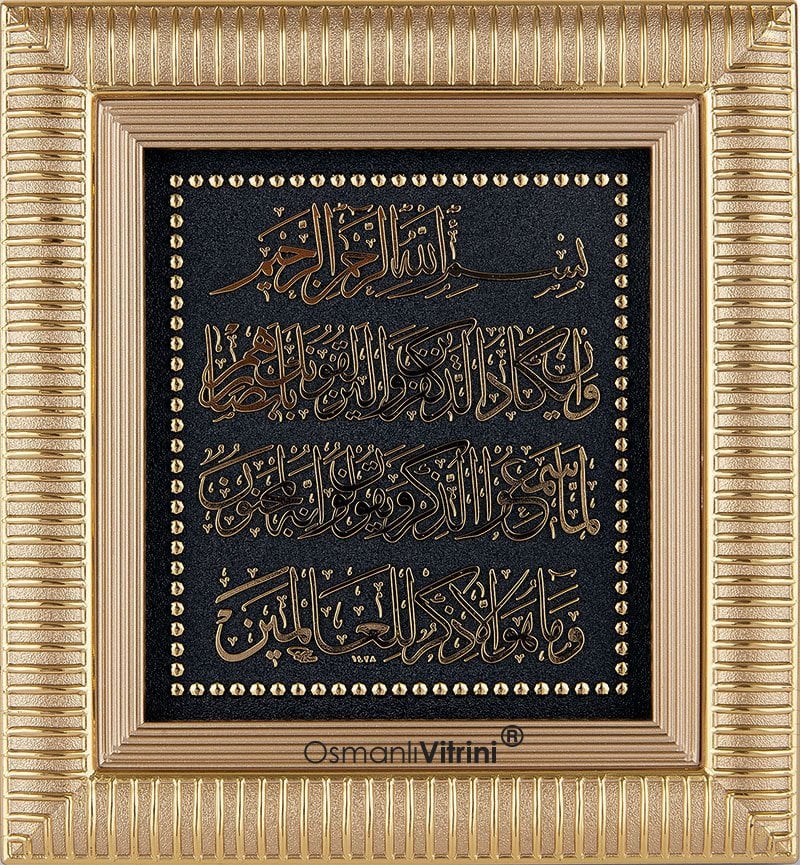 بسم الله الرحمن الرحيم
وان يكاد الذين كفروا ليزلقونك بابصارهم
لما سمعوا الذكر ويقولون انه لمجنون
وما هو الا ذكر للعالمين
١٤٢٨
OsmanlıVitrini®